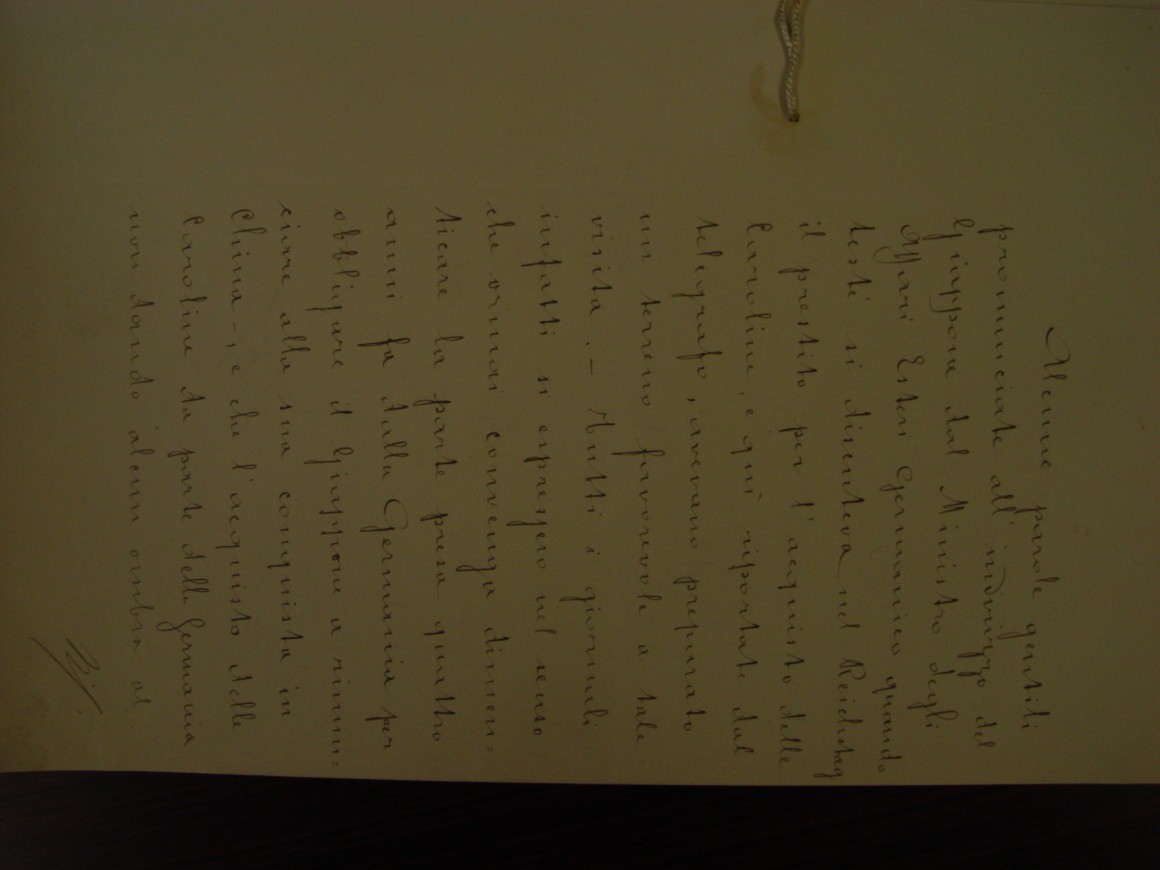 Alcune parole gentili
pronunciate all' indirizzo del
Giappone dal Ministro degli
Affari Esteri Germanico quando
testè si discuteva nel Reichstag
il prestito per l' acquisto delle
Caroline, e quì riportate dal
telegrafo, avevano preparato
un terreno favorevole a tale
visita. – Tutti i giornali
infatti si espressero nel senso
che ormai convenga dimen=
ticare la parte presa quattro
anni fa dalla Germania per
obbligare il Giappone a rinun=
ciare alla sua conquista in
China –, e che l'acquisto delle
Caroline da parte della Germania
non dando alcun ombra al